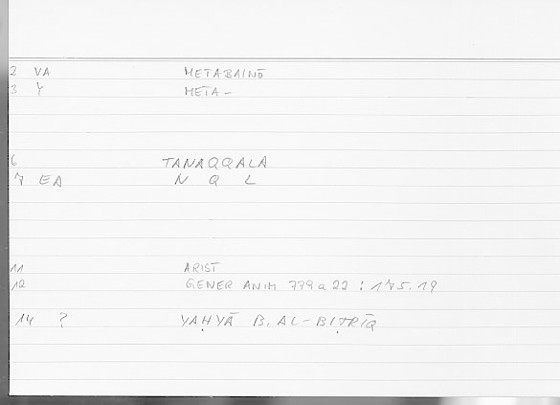 2 VA METABAINŌ
3 Y META-
6 TANAQQALA
7 EA N Q L
11 ARIST
12 GENER ANIM 779a22 : 175.19
14 ? YAḤYĀ B. AL-BIṬRĪQ